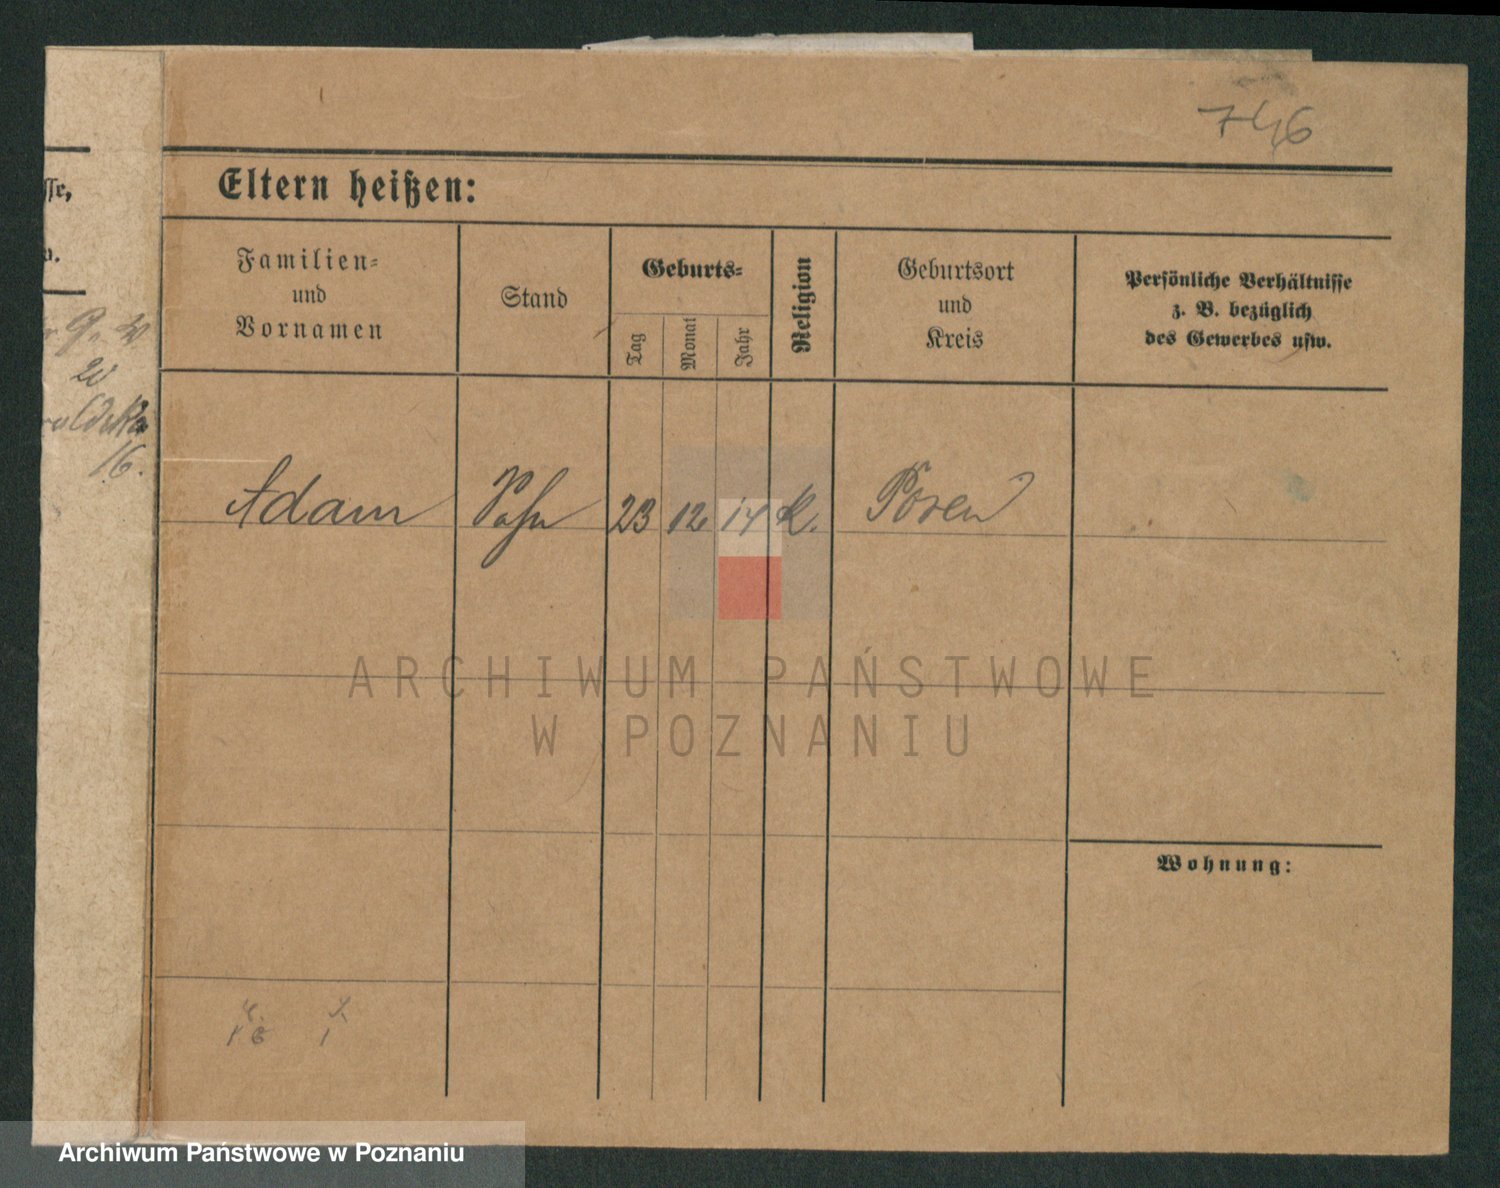 746
Eltern heißen:
Familien-
und
Vornamen
Stand
Geburts-
Tag
Monat
Jahr
Religion
Geburtsort
und
Kreis
Persönliche Verhältnisse
z. B. bezüglich
des Gewerbes usw.
16.
Adam Sohn 23 12 14 k. Posen
ARCHIWUM PAŃSTWOWE
W POZNANIU
Wohnung:
Archiwum Państwowe w Poznaniu